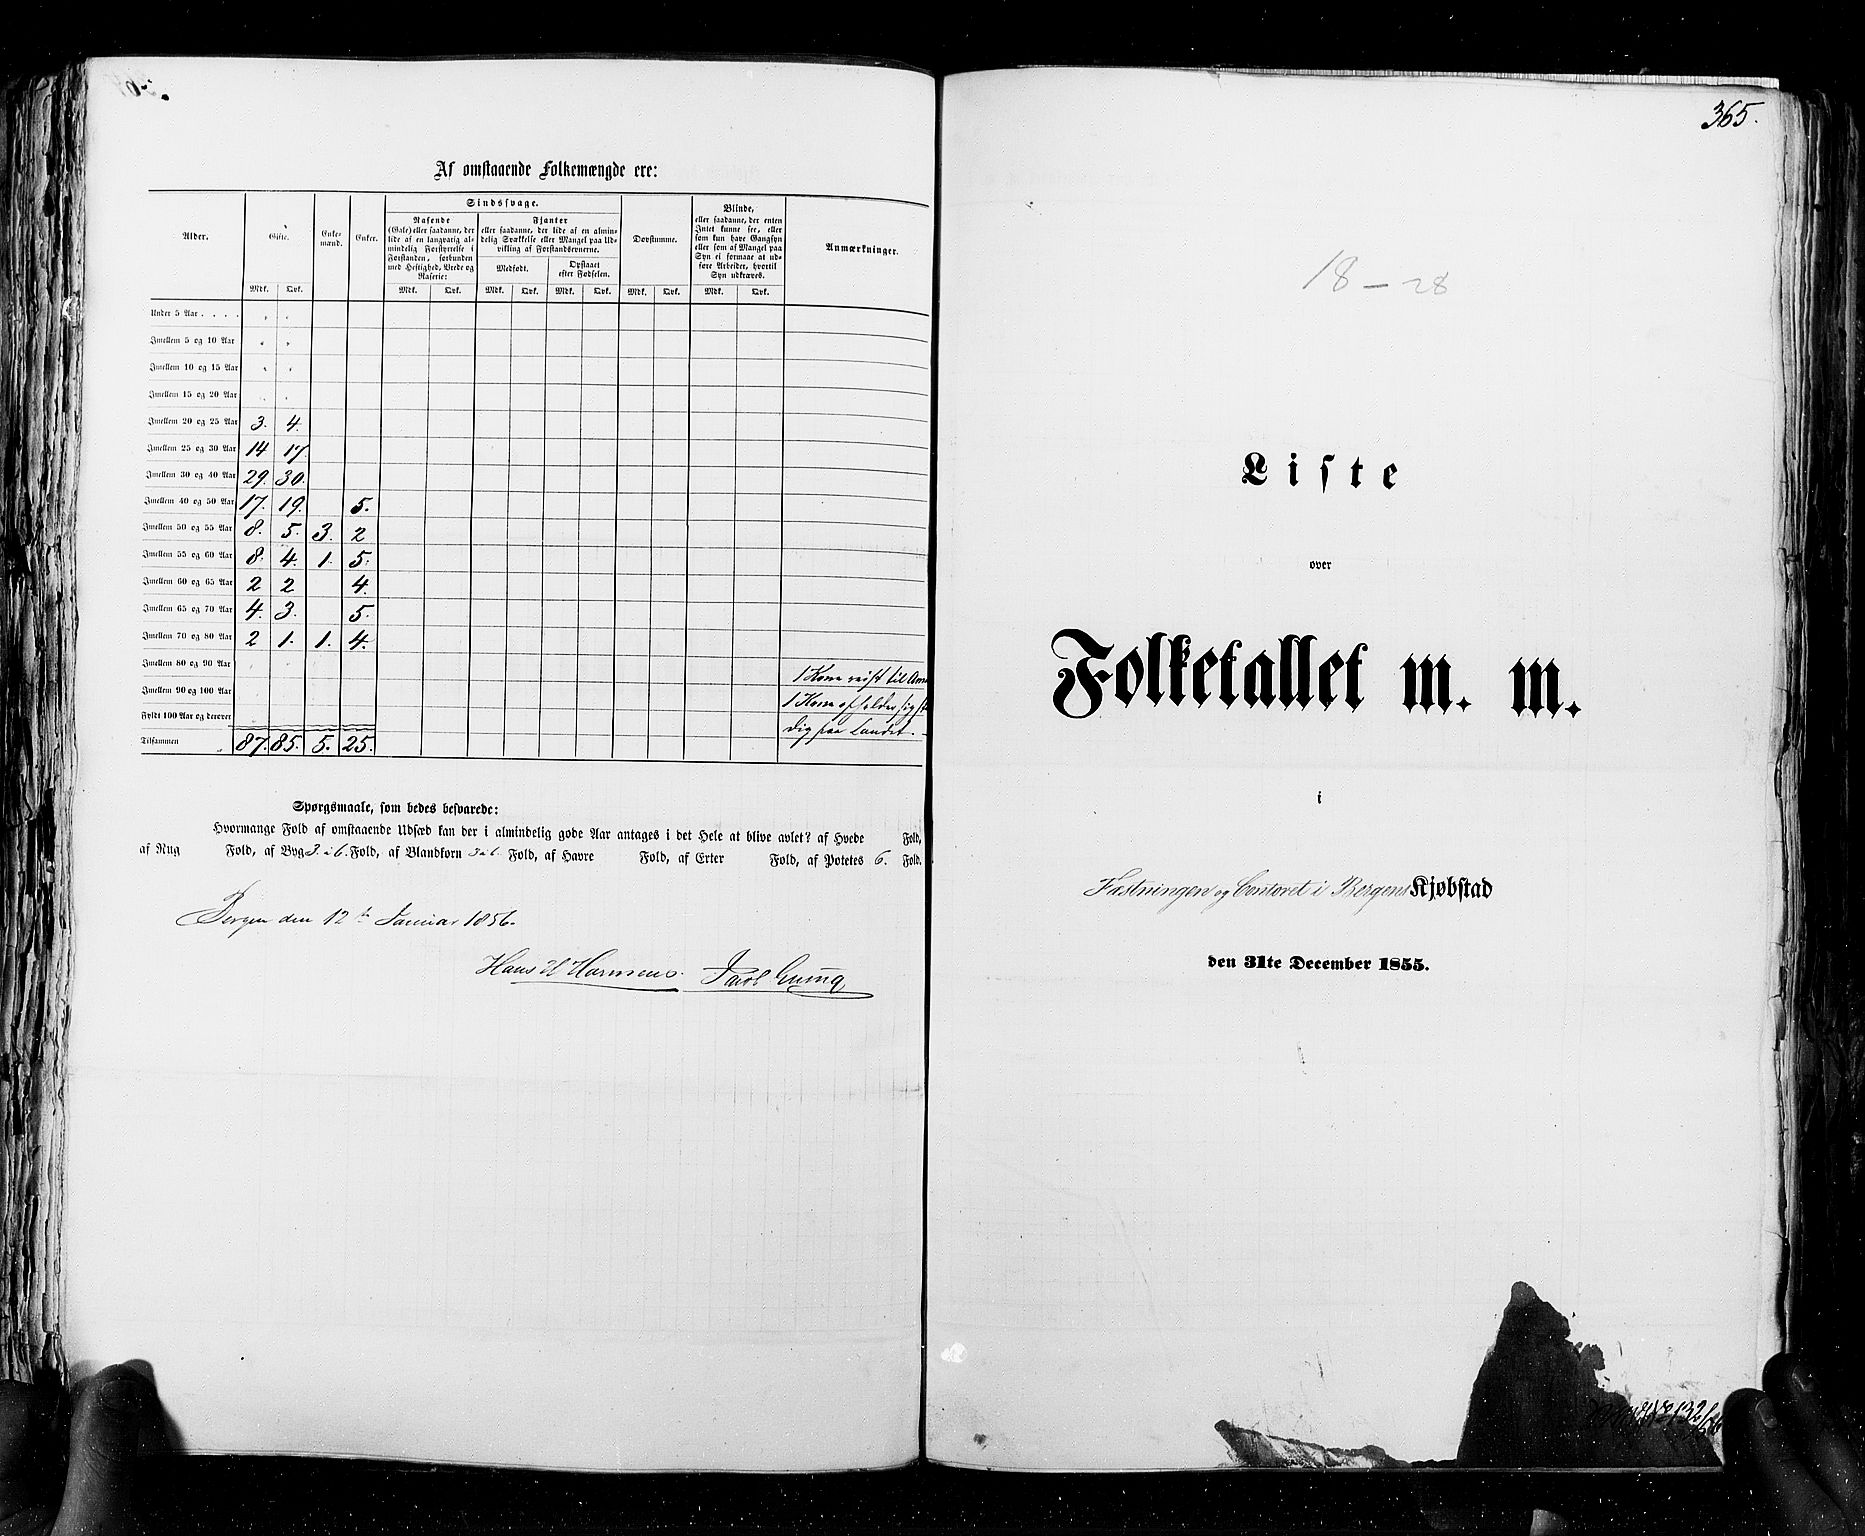 Af omstaaende Folkemængde ere:
Alder.
Gifte.
Enke-
mænd.
Enker.
Sindssvage.
Rasende
(Gale) eller saadanne, der
lide af en langvarig al-
mindelig Forstyrrelse i
Forstanden, forbunden
med Heftighed, Vrede og
Raserie:
Fjanter
eller saadanne, der lide af en almin-
delig Svækkelse eller Mangel paa Ud-
vikling af Forstandsevnerne.
Medfødt.
Opstaaet
efter Fødselen.
Døvstumme.
Blinde,
eller saadanne, der enten
Intet kunne see, eller
som kun have Gangsyn
eller som af Mangel paa
Syn ei formaae at ud-
føre Arbeider, hvortil
Syn udkræves.
Anmærkninger.
Mdk. Qvk. Mdk. Qvk. Mdk. Qvk. Mdk. Qvk. Mdk. Qvk. Mdk. Qvk.
Under 5 Aar . . . .
Imellem 5 og 10 Aar
Imellem 10 og 15 Aar
Imellem 15 og 20 Aar
Imellem 20 og 25 Aar 3. 4.
Imellem 25 og 30 Aar 14 17.
Imellem 30 og 40 Aar 29. 30.
Imellem 40 og 50 Aar 17. 19. 5.
Imellem 50 og 55 Aar 8. 5. 3. 2
Imellem 55 og 60 Aar 8. 4. 1. 5.
Imellem 60 og 65 Aar 2 2 4.
Imellem 65 og 70 Aar 4. 3. 5.
Imellem 70 og 80 Aar 2 1. 1. 4.
Imellem 80 og 90 Aar
1 Kone reist til Am
Imellem 90 og 100 Aar
1 Kone opholder sig
Fyldt 100 Aar og derover
dig paa Landet.
Tilsammen 87. 85. 5. 25.
Spørgsmaale, som bedes besvarede:
Hvormange Fold af omstaaende Udsæd kan der i almindelig gode Aar antages i det Hele at blive avlet? af Hvede Fold,
af Rug Fold, af Byg 3 à 6. Fold, af Blandkorn 3 à 6. Fold, af Havre Fold, af Erter Fold, af Potetes 6. Fold.
Bergen den 12te Januar 1856.
Hans H Harmens.
365.
18 — 28
Liste
over
Folketallet m. m.
i
Fæstningen og Contoret i Bergens Kjøbstad
den 31te December 1855.